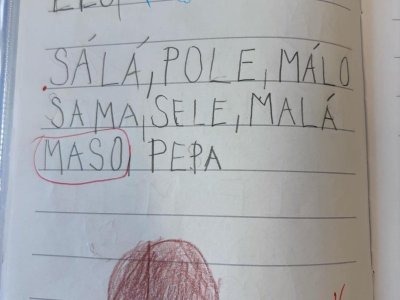 SÁLÁ, POLE, MÁLO
SAMA, SELE, MALÁ
MASO, PEPA